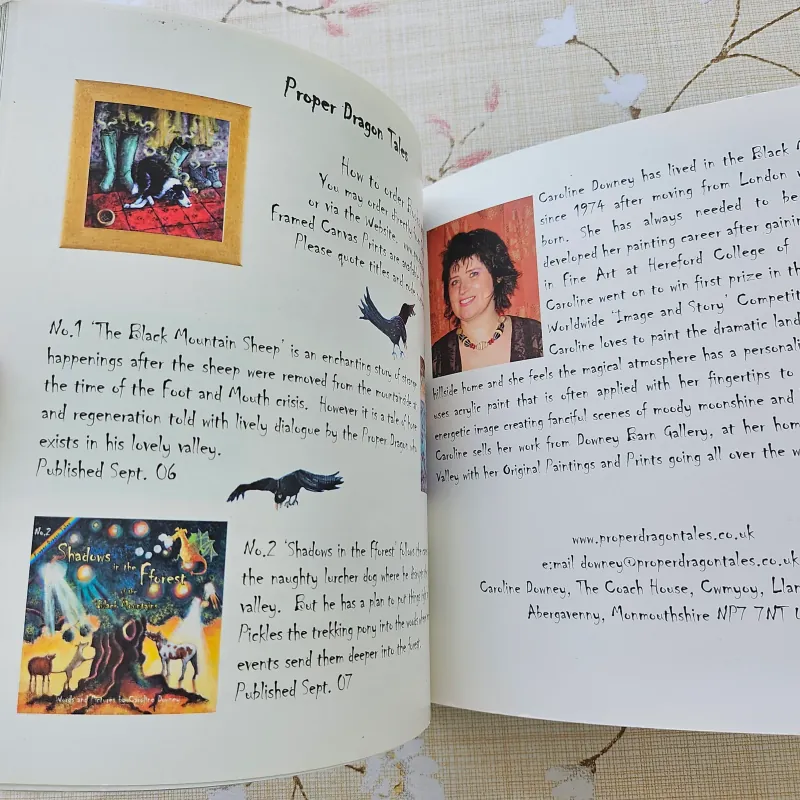 Proper Dragon Tales
How to order
You may order
or via the Website.
Framed Canvas Prints are available
Please quote titles and
No.1 'The Black Mountain Sheep' is an enchanting story of strange
happenings after the sheep were removed from the mountainside at
the time of the Foot and Mouth crisis. However it is a tale of hope
and regeneration told with lively dialogue by the Proper Dragon who
exists in his lovely valley.
Published Sept. 06
No.2
Shadows
in the
Fforest
of the
Black Mountains
Words and Pictures by Caroline Downey
No.2 'Shadows in the Fforest' follows the
the naughty lurcher dog where he
valley. But he has a plan to put things
Pickles the trekking pony into the woods where
events send them deeper into the forest.
Published Sept. 07
Caroline Downey has lived in the Black
since 1974 after moving from London
born. She has always needed to be
developed her painting career after
in Fine Art at Hereford College of
Caroline went on to win first prize in the
Worldwide 'Image and Story'
Caroline loves to paint the dramatic
hillside home and she feels the magical atmosphere has a
uses acrylic paint that is often applied with her fingertips to
energetic image creating fanciful scenes of moody moonshine and
Caroline sells her work from Downey Barn Gallery, at her
Valley with her Original Paintings and Prints going all over the
www.properdragontales.co.uk
e:mail downey@properdragontales.co.uk
Caroline Downey, The Coach House, Cwmyoy,
Abergavenny, Monmouthshire NP7 7NT